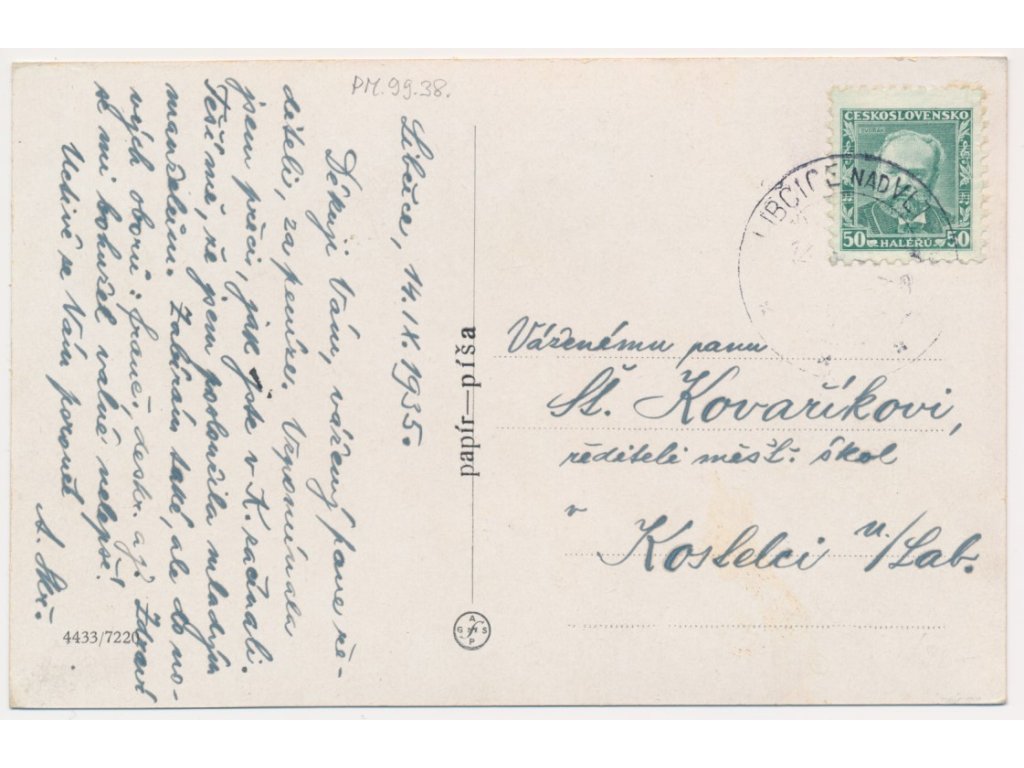 PM. 99.38.
Libčice, 14. IX. 1935.
Děkuji Vám, vážený pane ře-
diteli, za peníze. Vzpomínala
jsem přeci, jak jste v K. začnali.
Těší mě, že jsem posloužila mladých
manželům. Zabírám také, ale do no-
vých oborů: franc. deskr. aj. Zdraví
se mi bohužel valně nelepší!
Uctivě se Vám poroučí
A.
4433/7220
papír—píša
A
G S
P
ČESKOSLOVENSKO
DVOŘÁK
50 HALÉŘŮ 50
LIBČICE NAD VLT
Váženému panu
St. Kovaříkovi,
řediteli měšť. škol
v
Kostelci n./Lab.